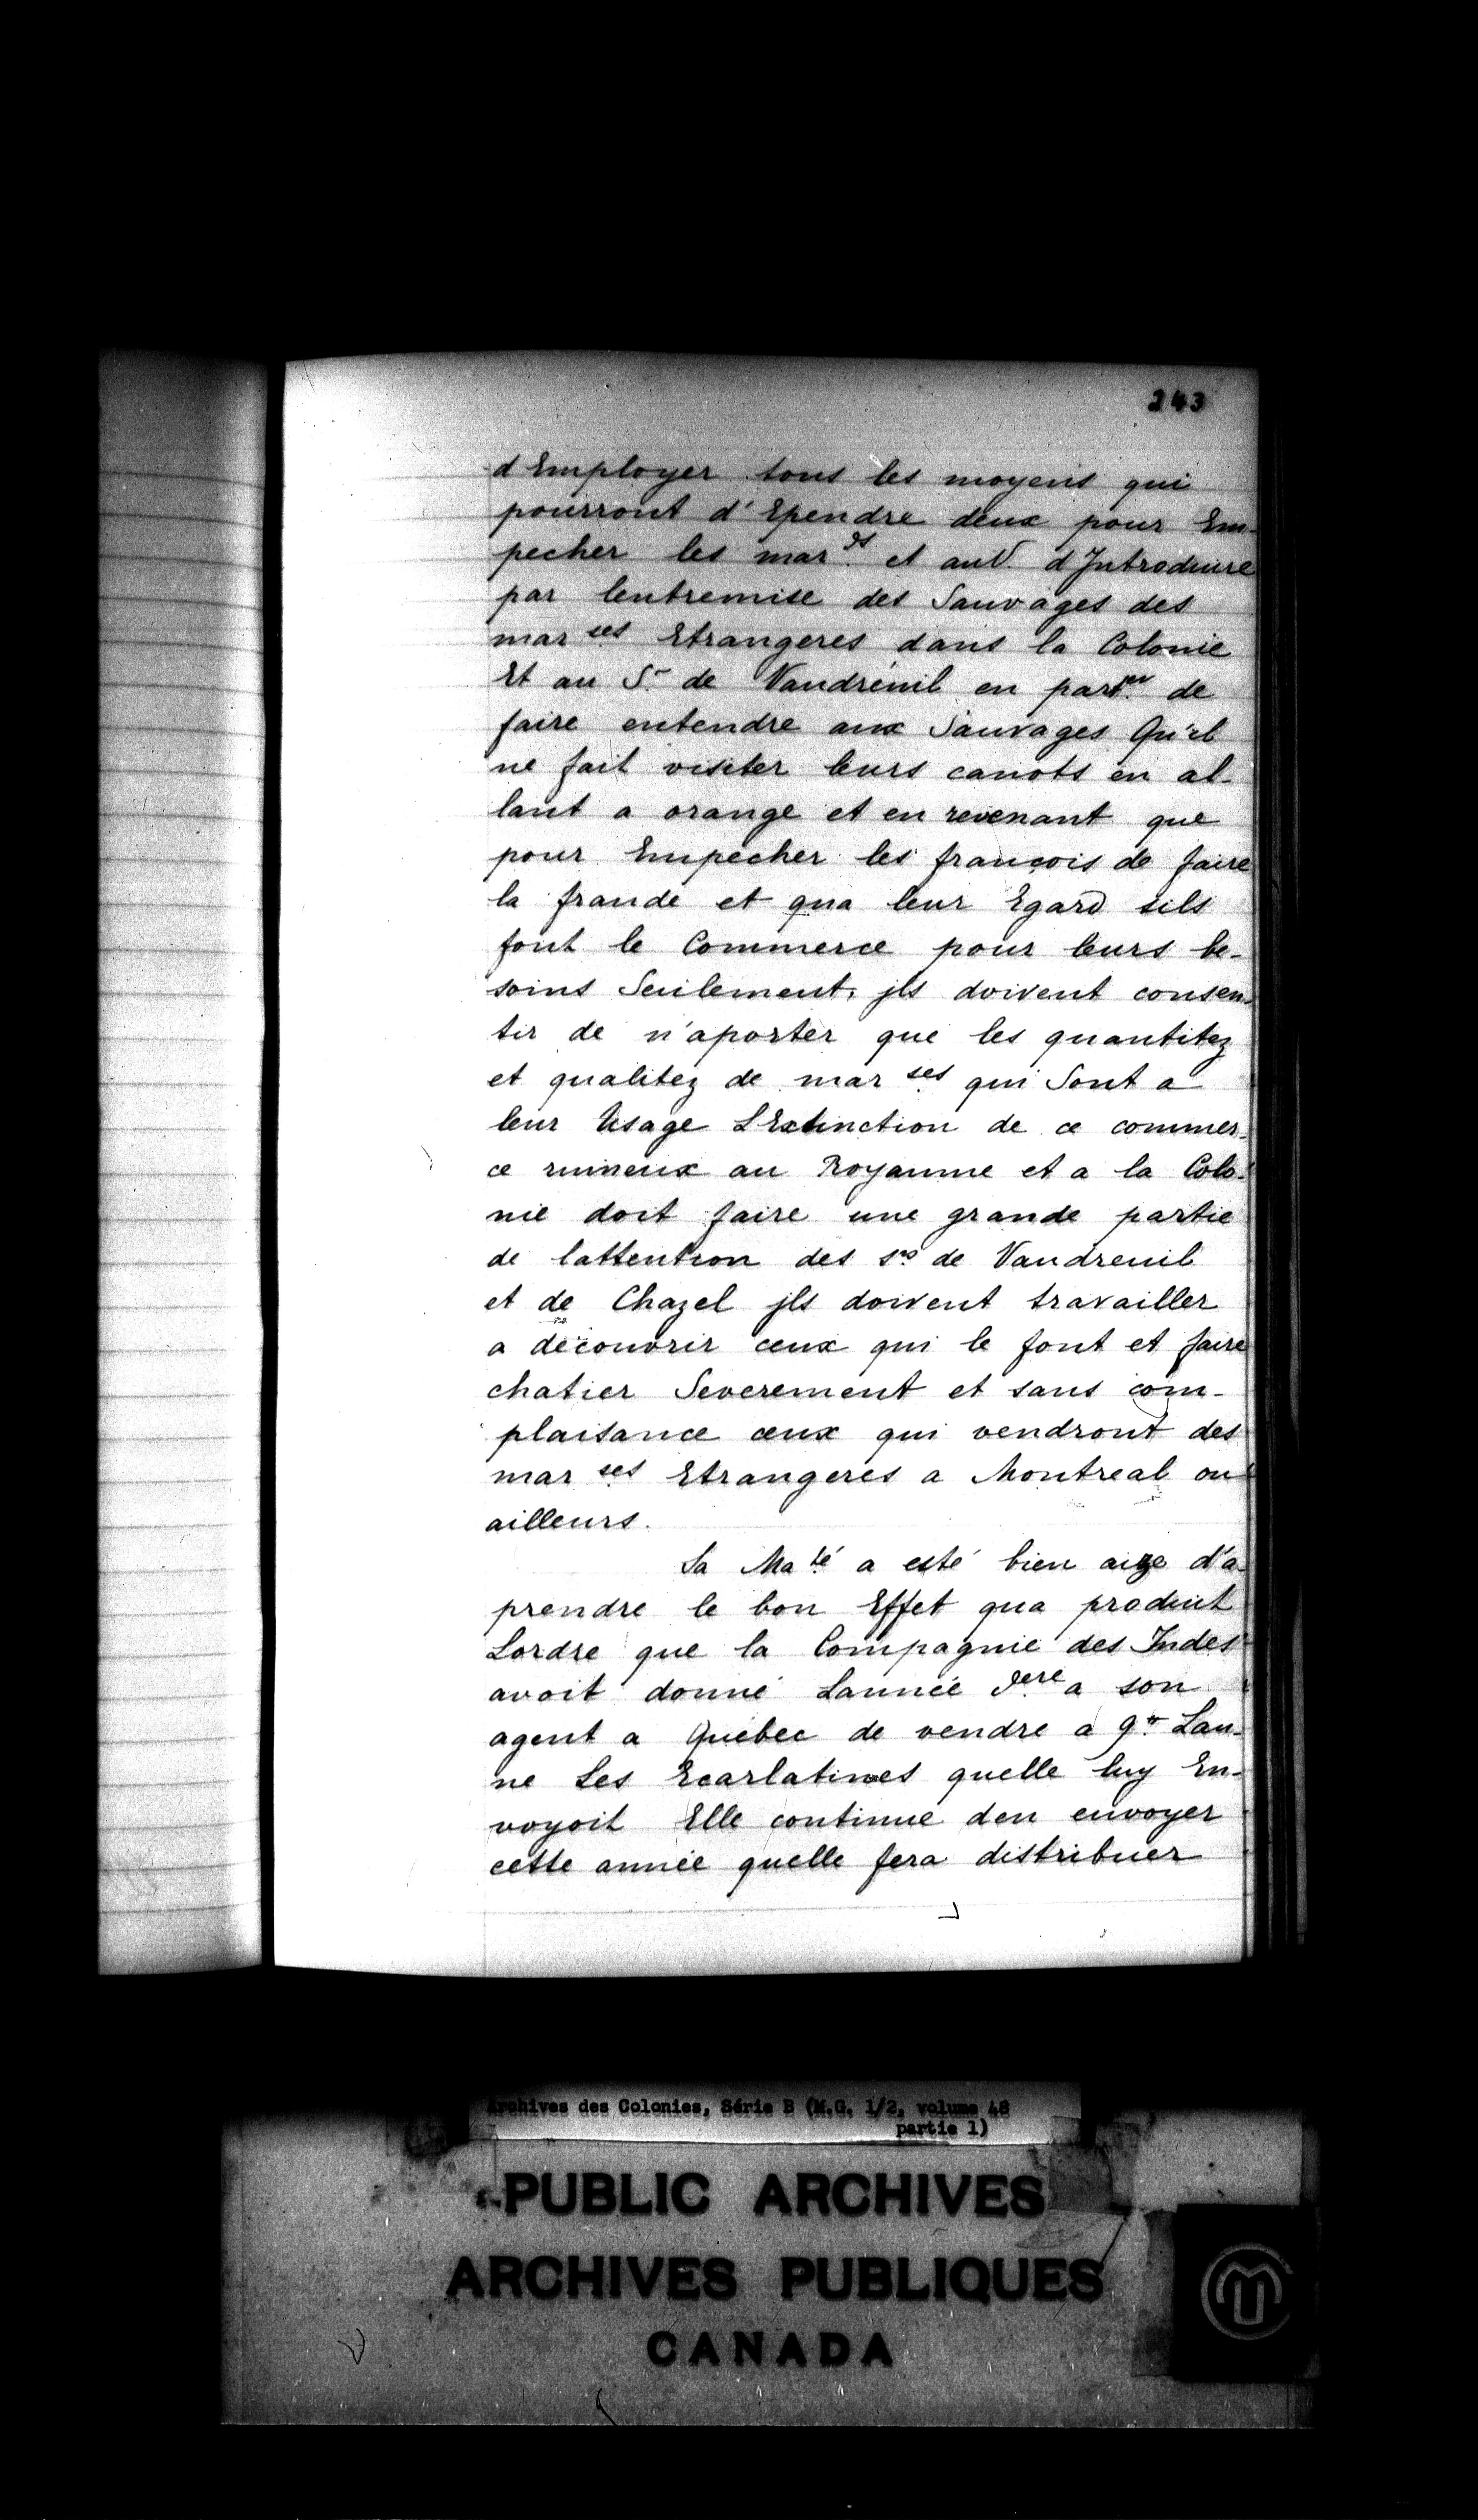 243
d'Employer tous les moyens qui
pourront d'Ependre deux pour Em-
pecher les mar ds et aut. d'Introduire
par lentremise des Sauvages des
mar ses Etrangeres dans la Colonie
Et au Sr de Vaudreuil en parter de
faire entendre aux Sauvages Qu'il
ne fait visiter leurs canots en al-
lant a orange et en revenant que
pour Empecher les françois de faire
la fraude et qua leur Egard sils
font le Commerce pour leurs be-
soins Seulement, jls doivent consen-
tir de n'aporter que les quantitez
et qualitez de mar ses qui Sont a
leur Usage LExtinction de ce commer-
ce ruineux au Royaume et a la Colo-
nie doit faire une grande partie
de lattention des srs de Vaudreuil
et de Chazel jls doivent travailler
a découvrir ceux qui le font et faire
chatier Severement et sans com-
plaisance ceux qui vendront des
mar ses Etrangeres a Montreal ou
ailleurs.
Sa Ma té a esté bien aize d'a-
prendre le bon Effet qua produit
Lordre que la Compagnie des Indes
avoit donné Lannée dere a son
agent a Quebec de vendre a 9tt Lau-
ne Les Ecarlatines quelle luy En-
voyoit Elle continue den envoyer
cette année quelle fera distribuer
Archives des Colonies, Série B (M.G. 1/2, volume 48
partie 1)
PUBLIC ARCHIVES
ARCHIVES PUBLIQUES
CANADA